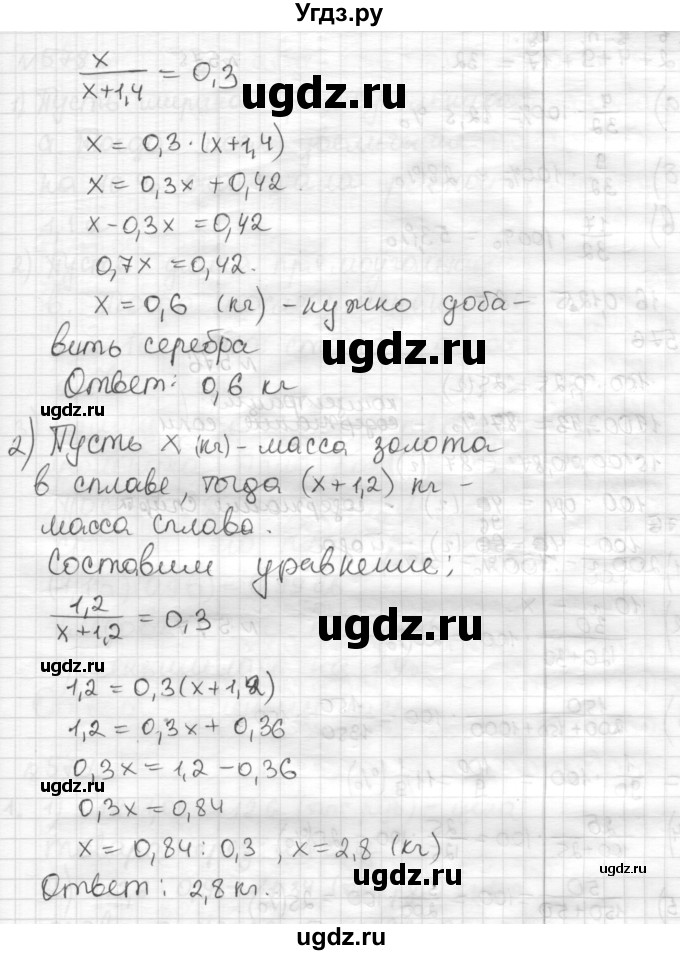 Угдз.ру
x/(x+1,4) = 0,3
ugdz.ru
x = 0,3·(x+1,4)
x = 0,3x + 0,42.
x - 0,3x = 0,42
0,7x = 0,42.
x = 0,6 (кг) - нужно доба-
вить серебра
ugdz.ru
Ответ: 0,6 кг
ugdz.ru
2) Пусть x (кг) - масса золота
в сплаве, тогда (x+1,2) кг -
масса сплава.
ugdz.ru
Составим уравнение:
1,2/(x+1,2) = 0,3
ugdz.ru
ugdz.ru
1,2 = 0,3(x+1,2)
1,2 = 0,3x + 0,36
0,3x = 1,2 - 0,36
ugdz.ru
0,3x = 0,84
x = 0,84 : 0,3, x = 2,8 (кг)
ugdz.ru
ugdz.ru
Ответ: 2,8 кг.
ugdz.ru